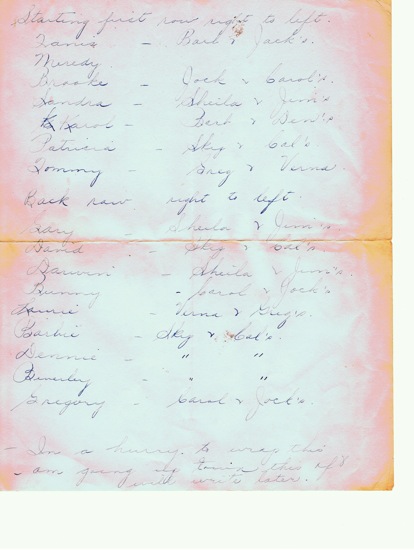 Starting first row right to left.
Tania - Barb & Jack's.
Meredy.
Brooke - Jock & Carol's.
Sandra - Sheila & Jim's
Karol - Barb & Den's
Patricia - Sky & Cal's
Tommy - Greg & Verna.
Back row right to left.
Gary - Sheila & Jim's
David - Sky & Cal's.
Darwin - Sheila & Jim's.
Bunny - Carol & Jock's
Laurie - Verna & Greg's.
Barbie - Sky & Cal's.
Dennie - " "
Beverley - " "
Gregory - Carol & Jock's.
- In a hurry to wrap this
- am going to town this aft
will write later.